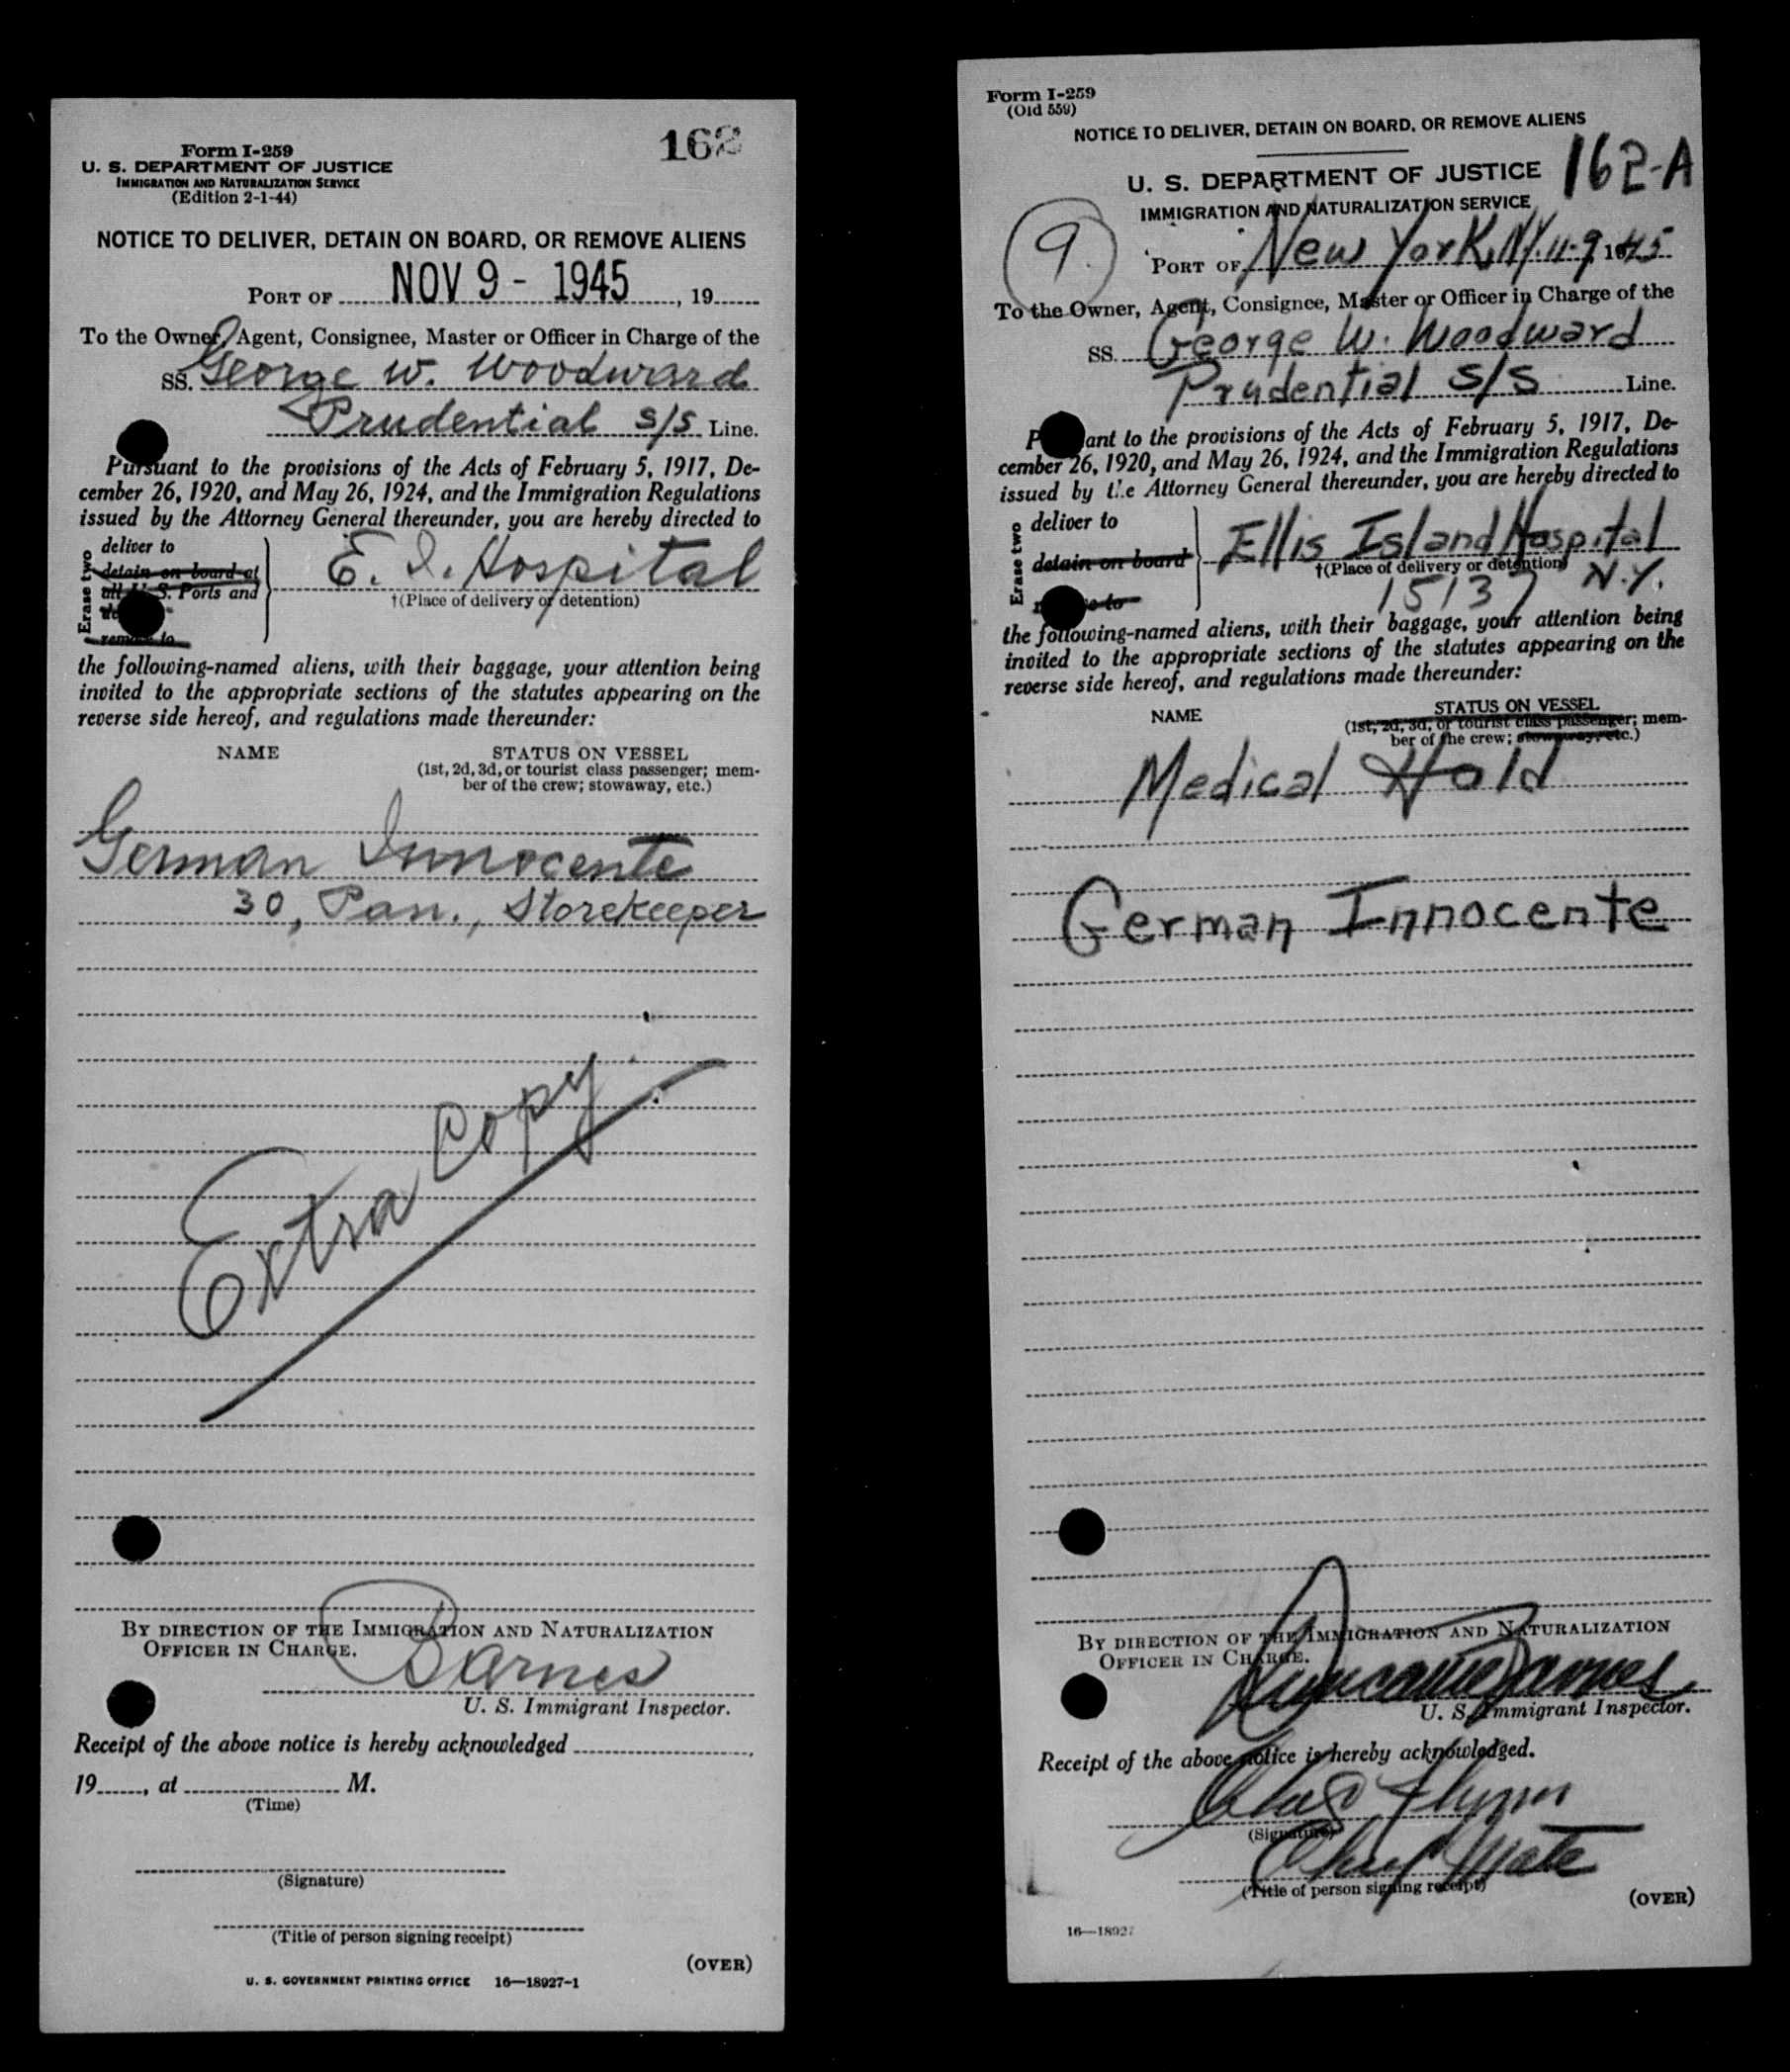 162
Form I-259
U. S. DEPARTMENT OF JUSTICE
IMMIGRATION AND NATURALIZATION SERVICE
(Edition 2-1-44)
NOTICE TO DELIVER, DETAIN ON BOARD, OR REMOVE ALIENS
PORT OF NOV 9 - 1945, 19
To the Owner, Agent, Consignee, Master or Officer in Charge of the
SS. George W. Woodward
Prudential S/S Line.
Pursuant to the provisions of the Acts of February 5, 1917, De-
cember 26, 1920, and May 26, 1924, and the Immigration Regulations
issued by the Attorney General thereunder, you are hereby directed to
Erase two
deliver to
detain on board at
all U. S. Ports and
remove to
E. I. Hospital
†(Place of delivery or detention)
the following-named aliens, with their baggage, your attention being
invited to the appropriate sections of the statutes appearing on the
reverse side hereof, and regulations made thereunder:
NAME STATUS ON VESSEL
(1st, 2d, 3d, or tourist class passenger; mem-
ber of the crew; stowaway, etc.)
German Innocente
30, Pan., Storekeeper
Extra Copy
BY DIRECTION OF THE IMMIGRATION AND NATURALIZATION
OFFICER IN CHARGE.
Barnes
U. S. Immigrant Inspector.
Receipt of the above notice is hereby acknowledged
19, at M.
(Time)
(Signature)
(Title of person signing receipt)
(OVER)
U. S. GOVERNMENT PRINTING OFFICE 16—18927-1
Form I-259
(Old 559)
NOTICE TO DELIVER, DETAIN ON BOARD, OR REMOVE ALIENS
U. S. DEPARTMENT OF JUSTICE 162-A
IMMIGRATION AND NATURALIZATION SERVICE
9.
PORT OF New York, N.Y. 11-9, 1945
To the Owner, Agent, Consignee, Master or Officer in Charge of the
SS. George W. Woodward
Prudential S/S Line.
Pursuant to the provisions of the Acts of February 5, 1917, De-
cember 26, 1920, and May 26, 1924, and the Immigration Regulations
issued by the Attorney General thereunder, you are hereby directed to
Erase two
deliver to
detain on board
to
Ellis Island Hospital
†(Place of delivery or detention) N.Y.
15137
the following-named aliens, with their baggage, your attention being
invited to the appropriate sections of the statutes appearing on the
reverse side hereof, and regulations made thereunder:
NAME STATUS ON VESSEL
(1st, 2d, 3d, or tourist class passenger; mem-
ber of the crew; stowaway, etc.)
Medical Hold
German Innocente
BY DIRECTION OF THE IMMIGRATION AND NATURALIZATION
OFFICER IN CHARGE.
Barnes
U. S. Immigrant Inspector.
Receipt of the above notice is hereby acknowledged.
Chas Flynn
(Signature)
Chief Mate
(Title of person signing receipt)
(OVER)
16—18927